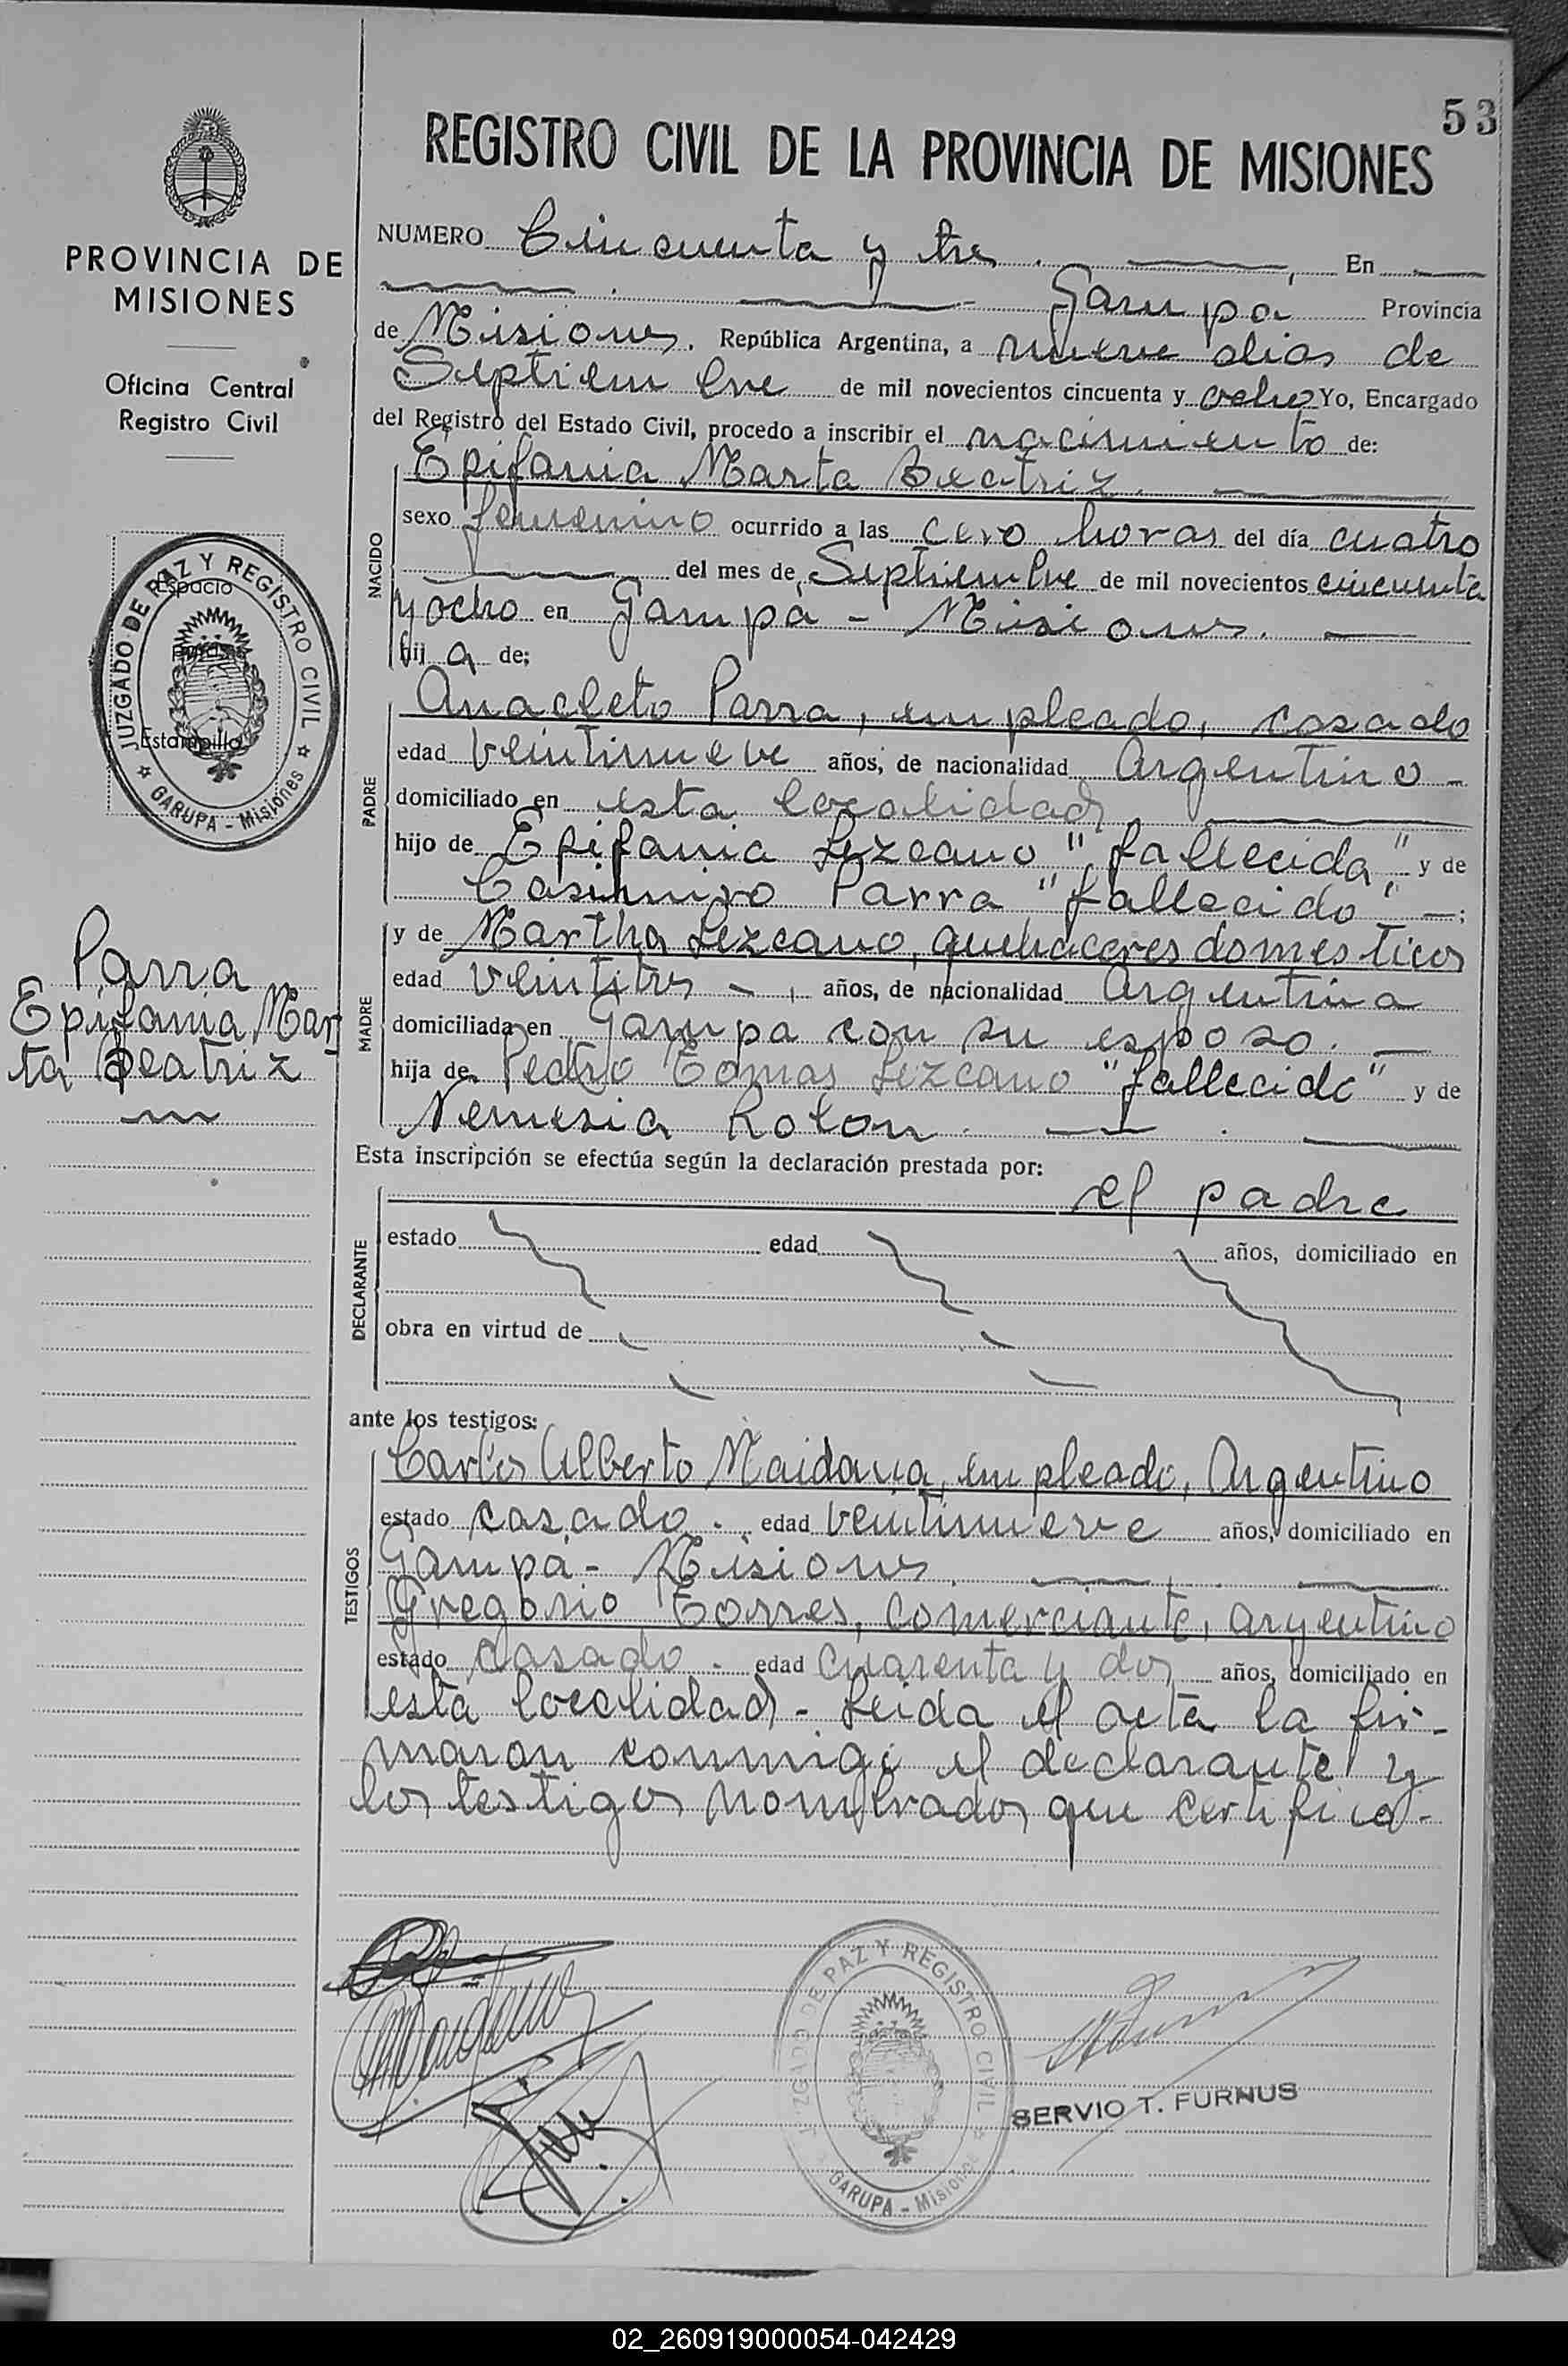 53
REGISTRO CIVIL DE LA PROVINCIA DE MISIONES
PROVINCIA DE
MISIONES
Oficina Central
Registro Civil
JUZGADO DE PAZ Y REGISTRO CIVIL
GARUPA - Misiones
Espacio
para
Estampilla
Parra
Epifania Mar
ta Beatriz
NUMERO Cincuenta y tres. En
Garupá Provincia
de Misiones. República Argentina, a nueve dias de
Septiembre de mil novecientos cincuenta y ocho Yo, Encargado
del Registro del Estado Civil, procedo a inscribir el nacimiento de:
NACIDO
Epifania Marta Beatriz.
sexo femenino ocurrido a las cero horas del día cuatro
del mes de Septiembre de mil novecientos cincuenta
y ocho en Garupá - Misiones.
hij a de;
PADRE
Anacleto Parra, empleado, casado
edad veintinueve años, de nacionalidad Argentino -
domiciliado en esta localidad
hijo de Epifania Lezcano "fallecida", y de
Casimiro Parra "fallecido" - ;
MADRE
y de Martha Lezcano, quehaceres domesticos
edad veintitres - , años, de nacionalidad Argentina
domiciliada en Garupa con su esposo.
hija de Pedro Tomas Lezcano "fallecido" y de
Nemesia Rolon.
Esta inscripción se efectúa según la declaración prestada por:
el padre
DECLARANTE
estado edad años, domiciliado en
obra en virtud de
ante los testigos:
TESTIGOS
Carlos Alberto Maidana, empleado, Argentino
estado casado. edad veintinueve años, domiciliado en
Garupá - Misiones.
Gregorio Torres, comerciante, argentino
estado casado. edad cuarenta y dos años, domiciliado en
esta localidad - Leida el acta la fir-
maron conmigo el declarante y
los testigos nombrados que certifico.-
JUZGADO DE PAZ Y REGISTRO CIVIL
GARUPA - Misiones
SERVIO T. FURNUS
02_260919000054-042429